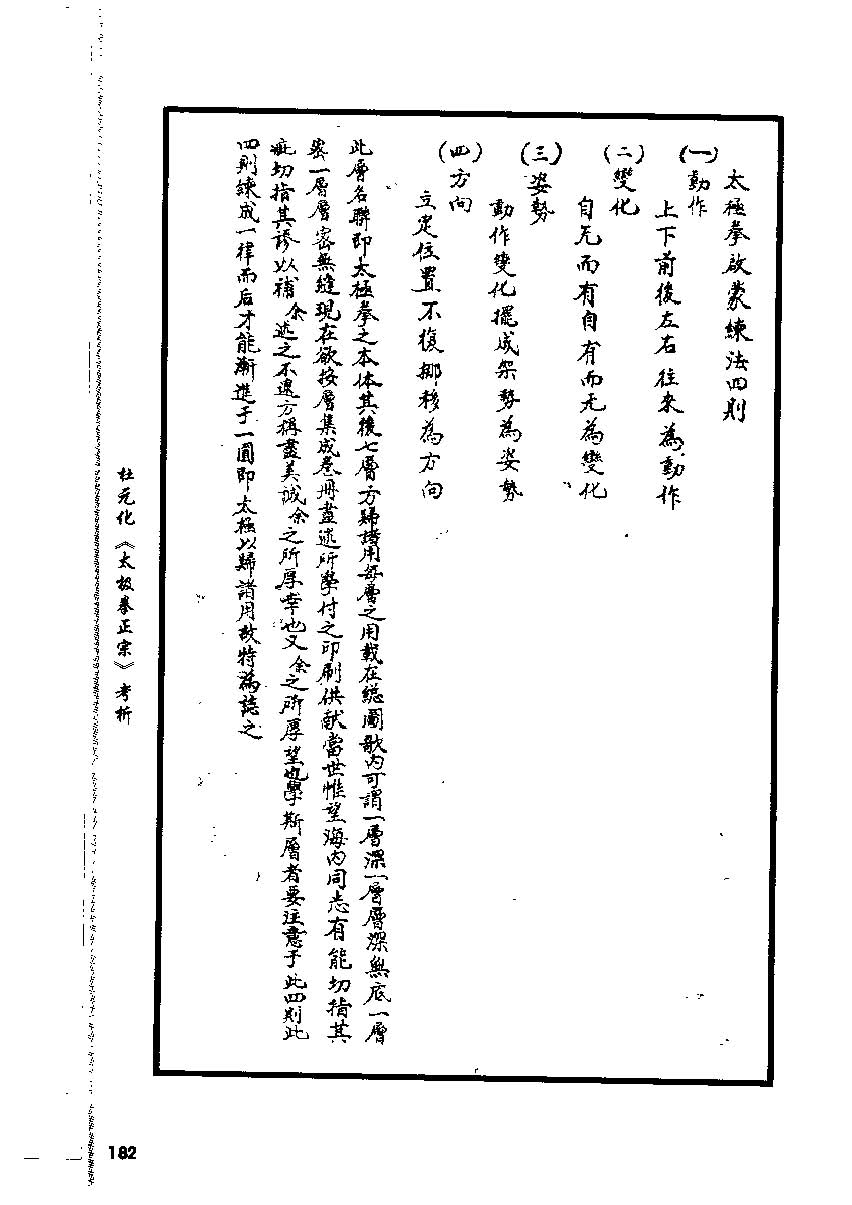 太極拳啟蒙練法四則
(一)動作
上下前後左右往來為動作
(二)變化
自无而有自有而无為變化
(三)姿勢
動作變化擺成架勢為姿勢
(四)方向
立定位置不復挪移為方向
此層名聯即太極拳之本体其後七層方歸諸用每層之用載在總圖歌內可謂一層深一層層深無底一層
密一層層密無縫現在欲按層集成卷冊盡述所學付之印刷供献當世惟望海內同志有能切指其
疵切指其謬以補余述之不逮方稱盡美誠余之所厚幸也又余之所厚望也學斯層者要注意于此四則此
四則練成一律而后才能漸進于一圓即太極以歸諸用故特為誌之
杜元化《太极拳正宗》考析
182